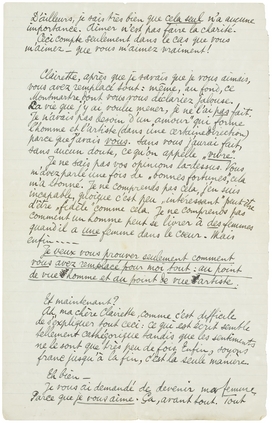 D'ailleurs, je sais très bien que cela seul n'a aucune
importance. dîner n'est pas faire la charité.
Ceci compte seulement dans le cas que vous
m'aimez — que vous m'aimez vraiment!
Clairette, après que je savais que je vous aimais,
vous avez remplacé tout: même, au fond, ce
Montmartre dont vous vous déclariez jalouse.
La vie que j'y au voulue mener, je ne l'ai pas fait.
Je n'avais pas besoin d'un "amour" qui forme
l'homme et l'artiste (dans une certaine direction)
parce que j'avais vous. Sans vous j'aurai fait,
sans aucun doute, ce qu'on appelle "vivre".
Je ne sais pas vos opinions là-dessus. Vous
m'avez parlé une fois de "bonnes fortunes", cela
m'a étonné. Je ne comprends pas cela, j'en suis
incapable, quoique c'est peu "intéressant" peut-être
d'être fidèle comme cela. Je ne comprends pas
comment un homme peut se livrer à des femmes
quand il a une femme dans le cœur. Mais
enfin
Je veux vous prouver seulement comment
vous avez remplacé pour moi tout, au point
de vue homme et au point de vue artiste.
Et maintenant?
Ah, ma chère Clairette, comme c'est difficile
de s'expliquer tout ceci: ce qui est écrit semble
tellement cathégorique tandis que les sentiments
ne le sont que très peu de fois. Enfin, soyons
franc jusqu'à la fin, c'est la seule manière.
Eh bien —
Je vous ai demandé de devenir ma femme.
Parce que je vous aime. Ça, avant tout. Tout